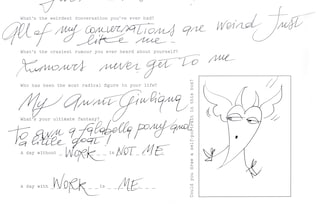 What's the weirdest conversation you've ever had?
All of my conversations are weird just
like me
What's the craziest rumour you ever heard about yourself?
Rumours never get to me
Who has been the most radical figure in your life?
My Aunt Giuliana
What's your ultimate fantasy?
To own a falabella pony and
a little goat!
A day without WORK is NOT ME
A day with WORK is ME
Could you draw a self-portrait in this box?